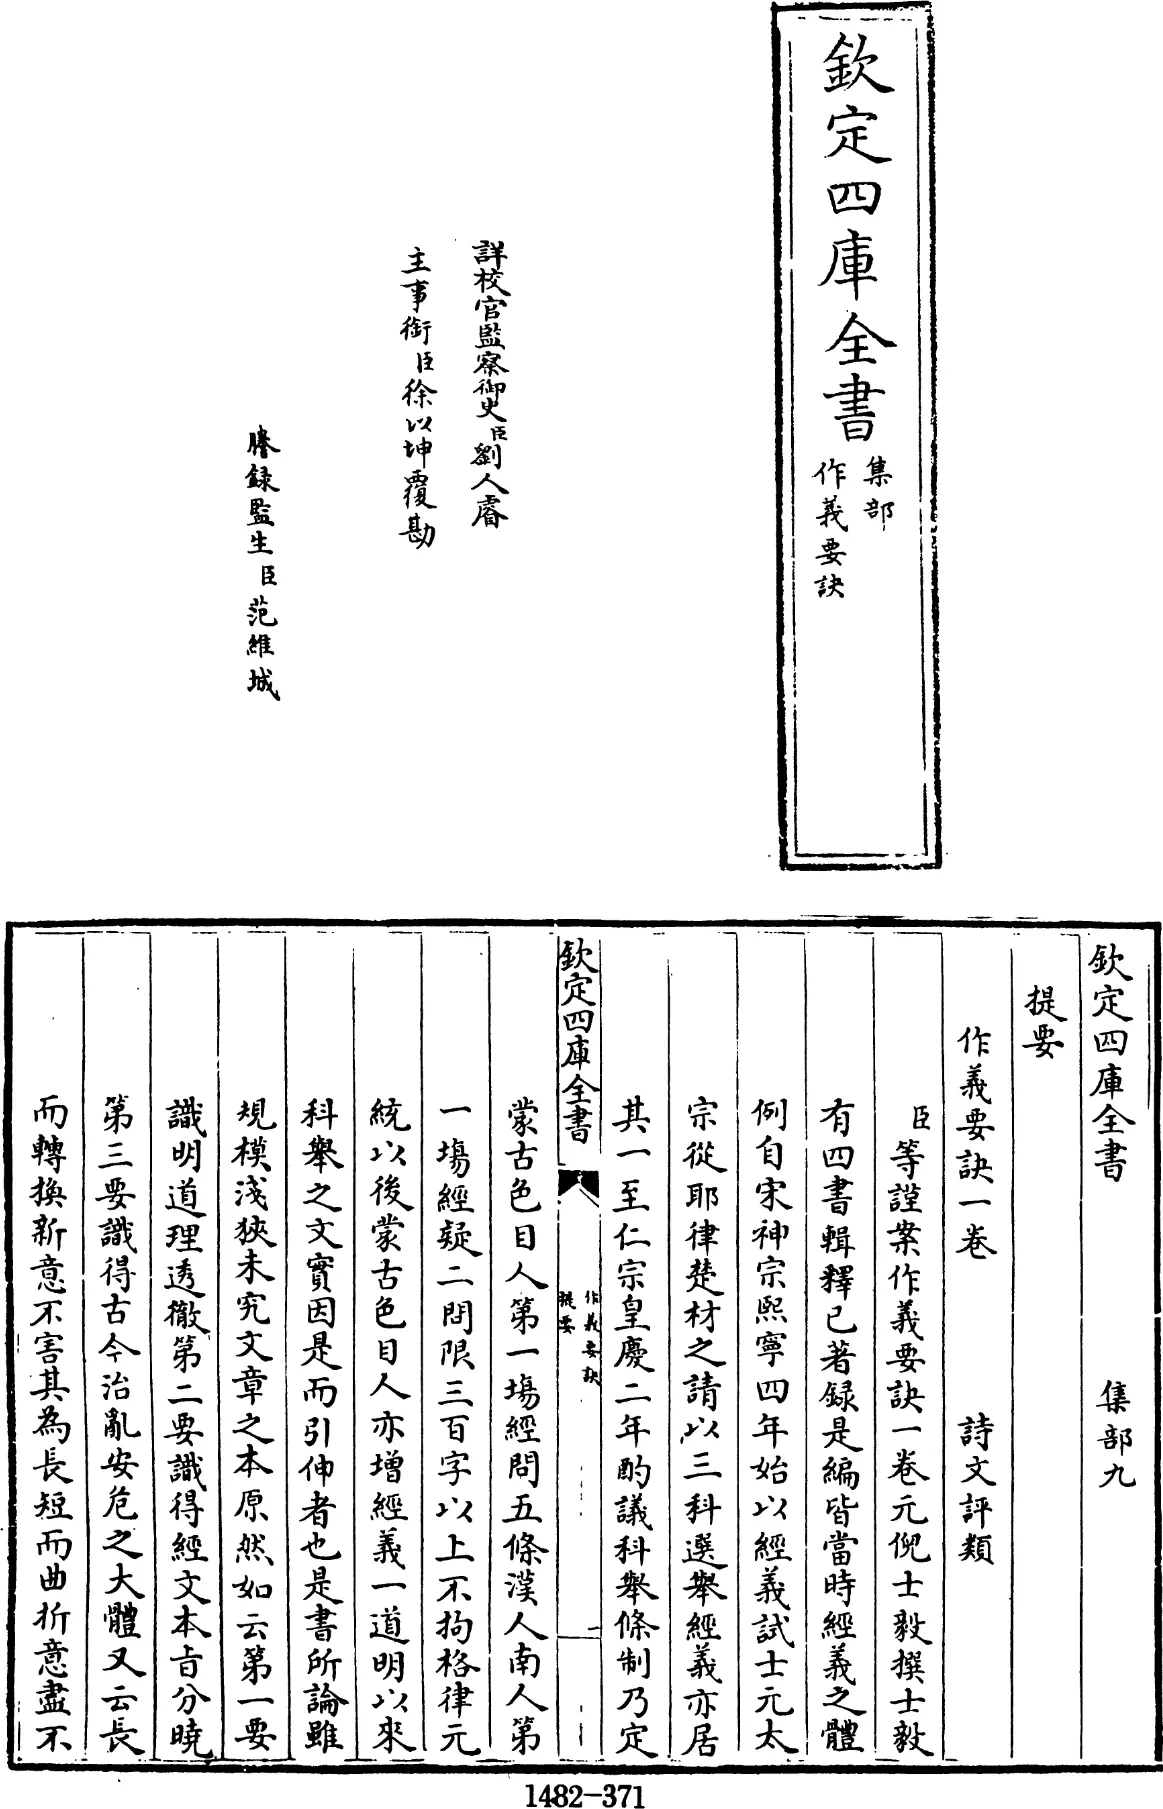 欽定四庫全書
集部
作義要訣
詳校官監察御史臣劉人睿
主事銜臣徐以坤覆勘
謄録監生臣范維城
欽定四庫全書 集部九
提要
作義要訣一卷 詩文評類
臣等謹案作義要訣一卷元倪士毅撰士毅
有四書輯釋已著録是編皆當時經義之體
例自宋神宗熙寧四年始以經義試士元太
宗從耶律楚材之請以三科選舉經義亦居
其一至仁宗皇慶二年酌議科舉條制乃定
欽定四庫全書
作義要訣
提要
一
蒙古色目人第一場經問五條漢人南人第
一場經疑二問限三百字以上不拘格律元
統以後蒙古色目人亦增經義一道明以來
科舉之文實因是而引伸者也是書所論雖
規模淺狹未究文章之本原然如云第一要
識明道理透徹第二要識得經文本旨分曉
第三要識得古今治亂安危之大體又云長
而轉換新意不害其為長短而曲折意盡不
1482-371